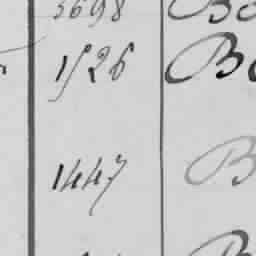 3698 Bo
1526 Bo
1447 B